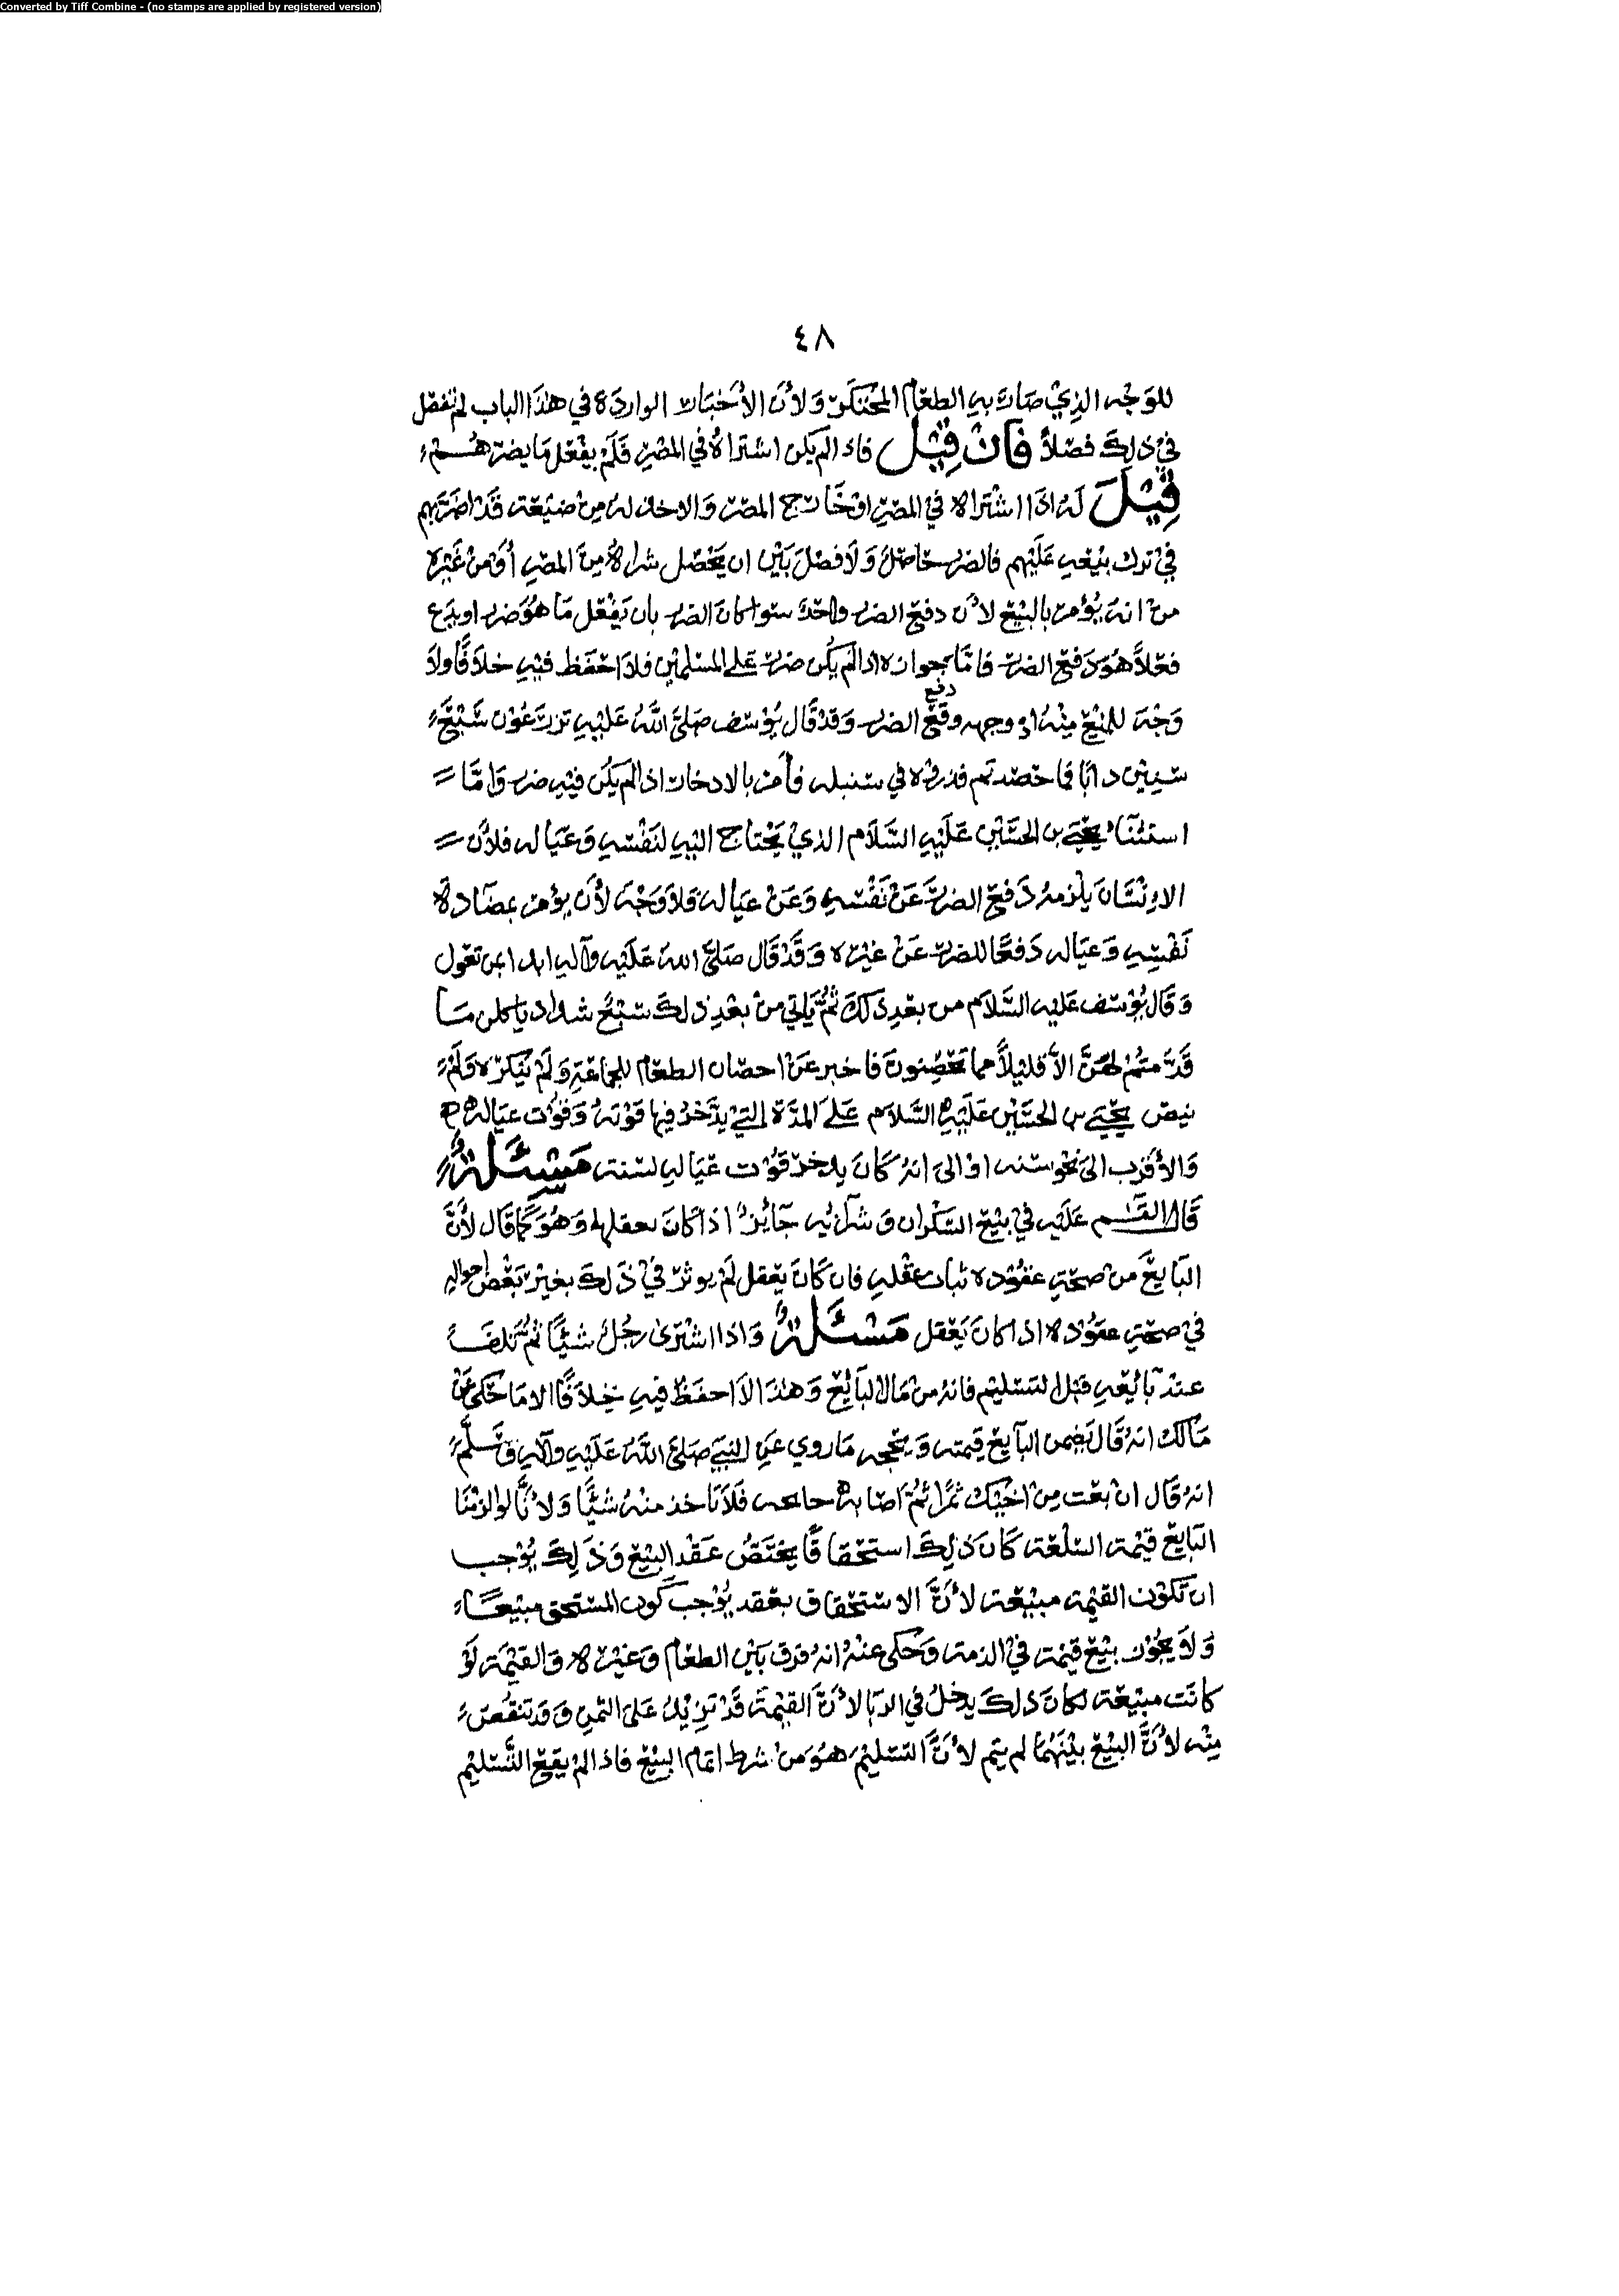 Converted by Tiff Combine - (no stamps are applied by registered version)
٤٨
للوَجْه الذِيْ صَارَ بهِ الطعَام المحْتَكَرَ وَلأن الأخبَار الواردَة في هٰذَا الباب لم تفصّل
فيْ ذلِكَ فصْلاً فَانْ قِيْلَ فاذ الم يكن اشتراهُ في المصْرِ فَلَمْ يفْعَل مَا يضرّ هُمْ
قِيْلَ لَهُ اذَا اشْتَراه في المصْرِ اوْ خَارج المصْر وَالادخله مِنْ ضيْعَته قَدْ اضرّ بهم
فيْ ترك بيْعهِ عَلَيْهم فالضرر حَاصلٌ وَلَا فصْلَ بَيْن ان يحْصل شراهُ مِنَ المصْرِ أوْ منْ غَيْرِه
منْ انه يُؤمر بالبَيْع لأن دفعَ الضرر واحدٌ سَوا كانَ الضرر بان يَفْعَل مَا هُوَ ضرر او يدَع
فعْلاً هُوَ دَفعَ الضرر فامّا جوازه اذا لم يكُن ضررٌ علَى المسْلميْن فلا احْفَظ فيْهِ خلافًا ولَا
وَجْهَ للمَنْع مِنْهُ اذ وجهه وقعَ دفع الضرر وَقدْ قَال يُوْسَف صَلَّى اللهُ عَلَيْهِ تزرَعُوْن سَبْعَ
سنِيْن دابًا فما حَصَدتم فذروْه في سنبله فأمرَ بالادخار اذا لم يكُن فيْهِ ضرر وَامّا =
استثنَاءُ يحْيَى بن الحسَيْن عَلَيْهِ السَّلَام الذيْ يحْتاج اليهِ لنَفْسهِ وَعيَاله فلأن =
الاِنْسَانَ يلْزمهُ دَفعَ الضررِ عَنْ نَفْسهِ وَعَنْ عيَاله وَلا وَجْهَ لأن يؤمر بمضَارة
نَفْسِهِ وَعيَاله دَفعًا للضرر عَنْ غيْره وَقَدْ قَال صَلَّى اللهُ عَلَيْه وآله ابدا بمن تعُول
وَقَال يُوْسَف عَليه السَّلام من بعْدِ ذَلكَ ثمُّ يَاتي منْ بعْدِ ذلكَ سَبْعُ شداد ياكلن مَا
قَدَّمتُمْ لهُنَّ الاّ قليْلاً مما تحْصِنونَ فاخبر عَنْ احصان الطعَام للمجاعَةِ وَلَمْ يُنكرْه وَلَمْ
ينصّ يحْيَى بن الحسَيْن عَلَيْهِ السَّلَام عَلَى المدَّة التيْ يدّخرُ فيها قوْتهُ وَقوْت عيَاله
وَالأقرَب الى نحْو سَنه اذ الىَ انهُ كَانَ يدخرَ قُوْت عيَالهِ لسَنته مَسْئَلةٌ
قَالَ القاسم عَلَيْه فيْ بيْع السَّكْران وَشرائه جَائِزٌ اذا كانَ يعقلها وَهُوَ كَمَا قَال لأنَّ
البَايِعَ منْ صحّةِ عقُوْده ثبات عقْلهِ فان كَانَ يعْقل لَمْ يوثرْ فيْ ذَلكَ بغيْر بَعْض احوالِه
فيْ صحّةِ عقُوْده اذا كانَ يَعْقل مَسْئَلةٌ وَاذا اشْترَىٰ رجُلٌ شيْئًا ثمُّ تلفَ
عنْدَ بائِعهِ قبْل التسْليْم فانهُ منْ مَال البَائِع وَهٰذا لا احفَظ فيهِ خِلافًا الا مَا حُكِي عَنْ
مَالك انهُ قَال يَضمن البَايعَ قيمته وَيحجه مَا روي عَنِ النبيّ صَلَّى اللهُ عَلَيْهِ وآله وَسَلَّم
انهُ قَال انْ بعْت مِنْ اخيْكَ ثمرًا ثُمَّ اصَابهُ جايحه فَلَا تَاخذ منْهُ شيْئًا وَلأنّا لو الزمْنَا
البَايعَ قيْمَة السّلْعَة كَانَ ذَلِكَ استحْقاقًا يخْتَصُّ عَقْد البَيْع وَذَلِكَ يُوْجب
ان تكُوْن القيْمه مبيْعَة لأنَّ الاسْتحْقاق بعقد يُوْجب كَون المسْتحق مبيْعًا
وَلَا يجُوْز بيْع قيمَة فيْ الذمة وَحُكي عنْهُ انهُ فرق بَيْن الطعَام وَغيْره وَالقيْمَة لَوْ
كانَت مبيْعَة لكَانَ ذلكَ يدخلُ في الربَا لأنَّ القيْمَة قَدْ تزيْدُ عَلى الثمن وَقدْ تنقُص
مِنْه لأنَّ البَيْعَ بيْنَهُمَا لم يتم لأنَّ التسْليْم هُوَ منْ شرط اتمام البَيْع فاذ الم يقَع التَّسْليْم